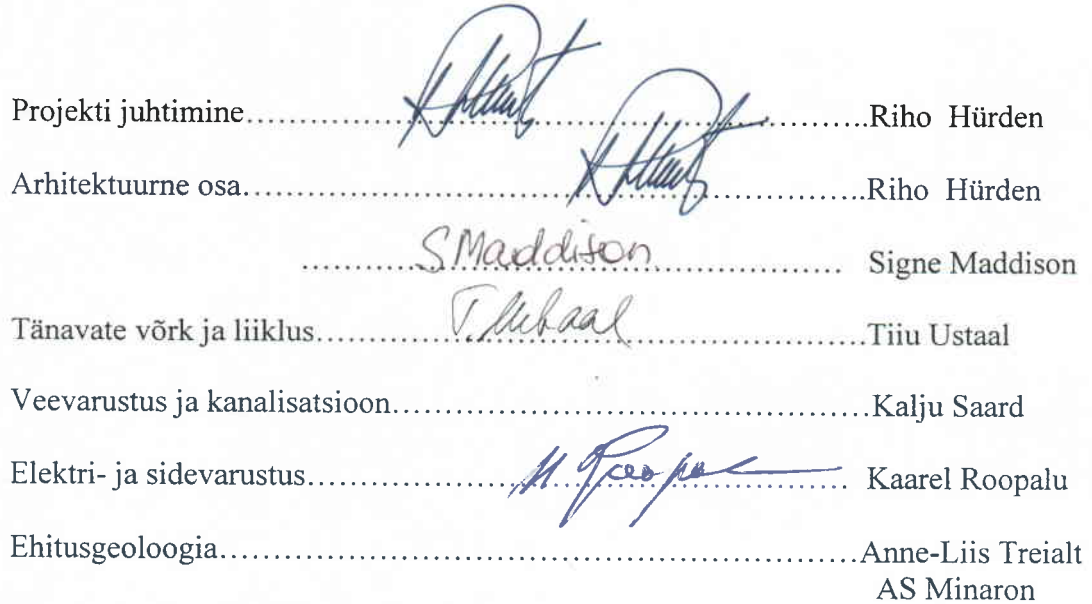 Projekti juhtimine..........Riho Hürden
Arhitektuurne osa..........Riho Hürden
SMaddison
.......... Signe Maddison
Tänavate võrk ja liiklus..........Tiiu Ustaal
Veevarustus ja kanalisatsioon..........Kalju Saard
Elektri- ja sidevarustus.......... Kaarel Roopalu
Ehitusgeoloogia..........Anne-Liis Treialt
AS Minaron